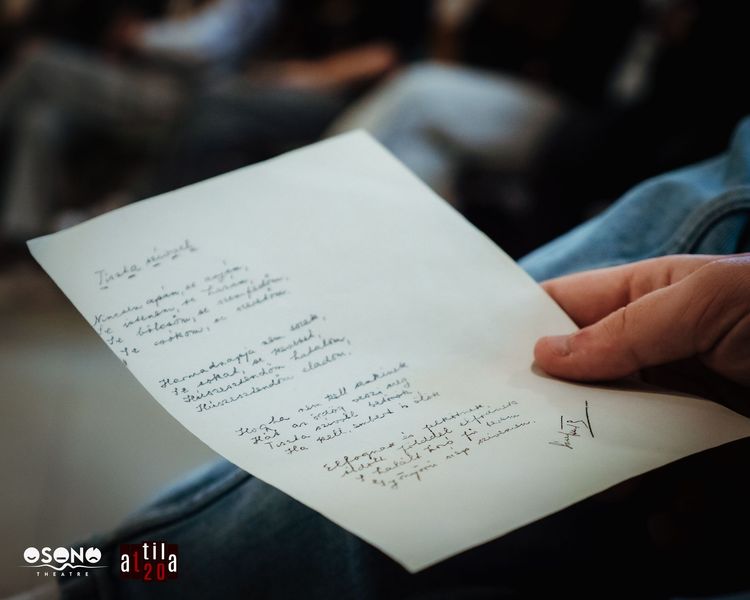 Tiszta szívvel
Nincsen apám, se anyám,
Se istenem, se hazám,
Se bölcsőm, se szemfedőm,
Se csókom, se szeretőm.
Harmadnapja nem eszek,
Se sokat, se keveset,
Húszesztendőm hatalom,
Húszesztendőm eladom.
Hogyha nem kell senkinek
Hát az ördög veszi meg
Tiszta szívvel betörök,
Ha kell, embert is ölök
Elfognak és felkötnek,
áldott földdel elfödnek
S halált hozó fű terem
Gyönyörű szép szívemen.
OSONO
THEATRE
attila
20